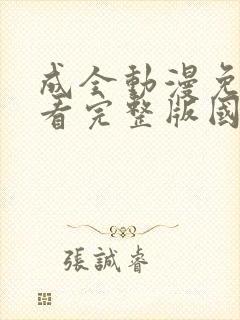 成全動漫免
看完整版國
張誠睿